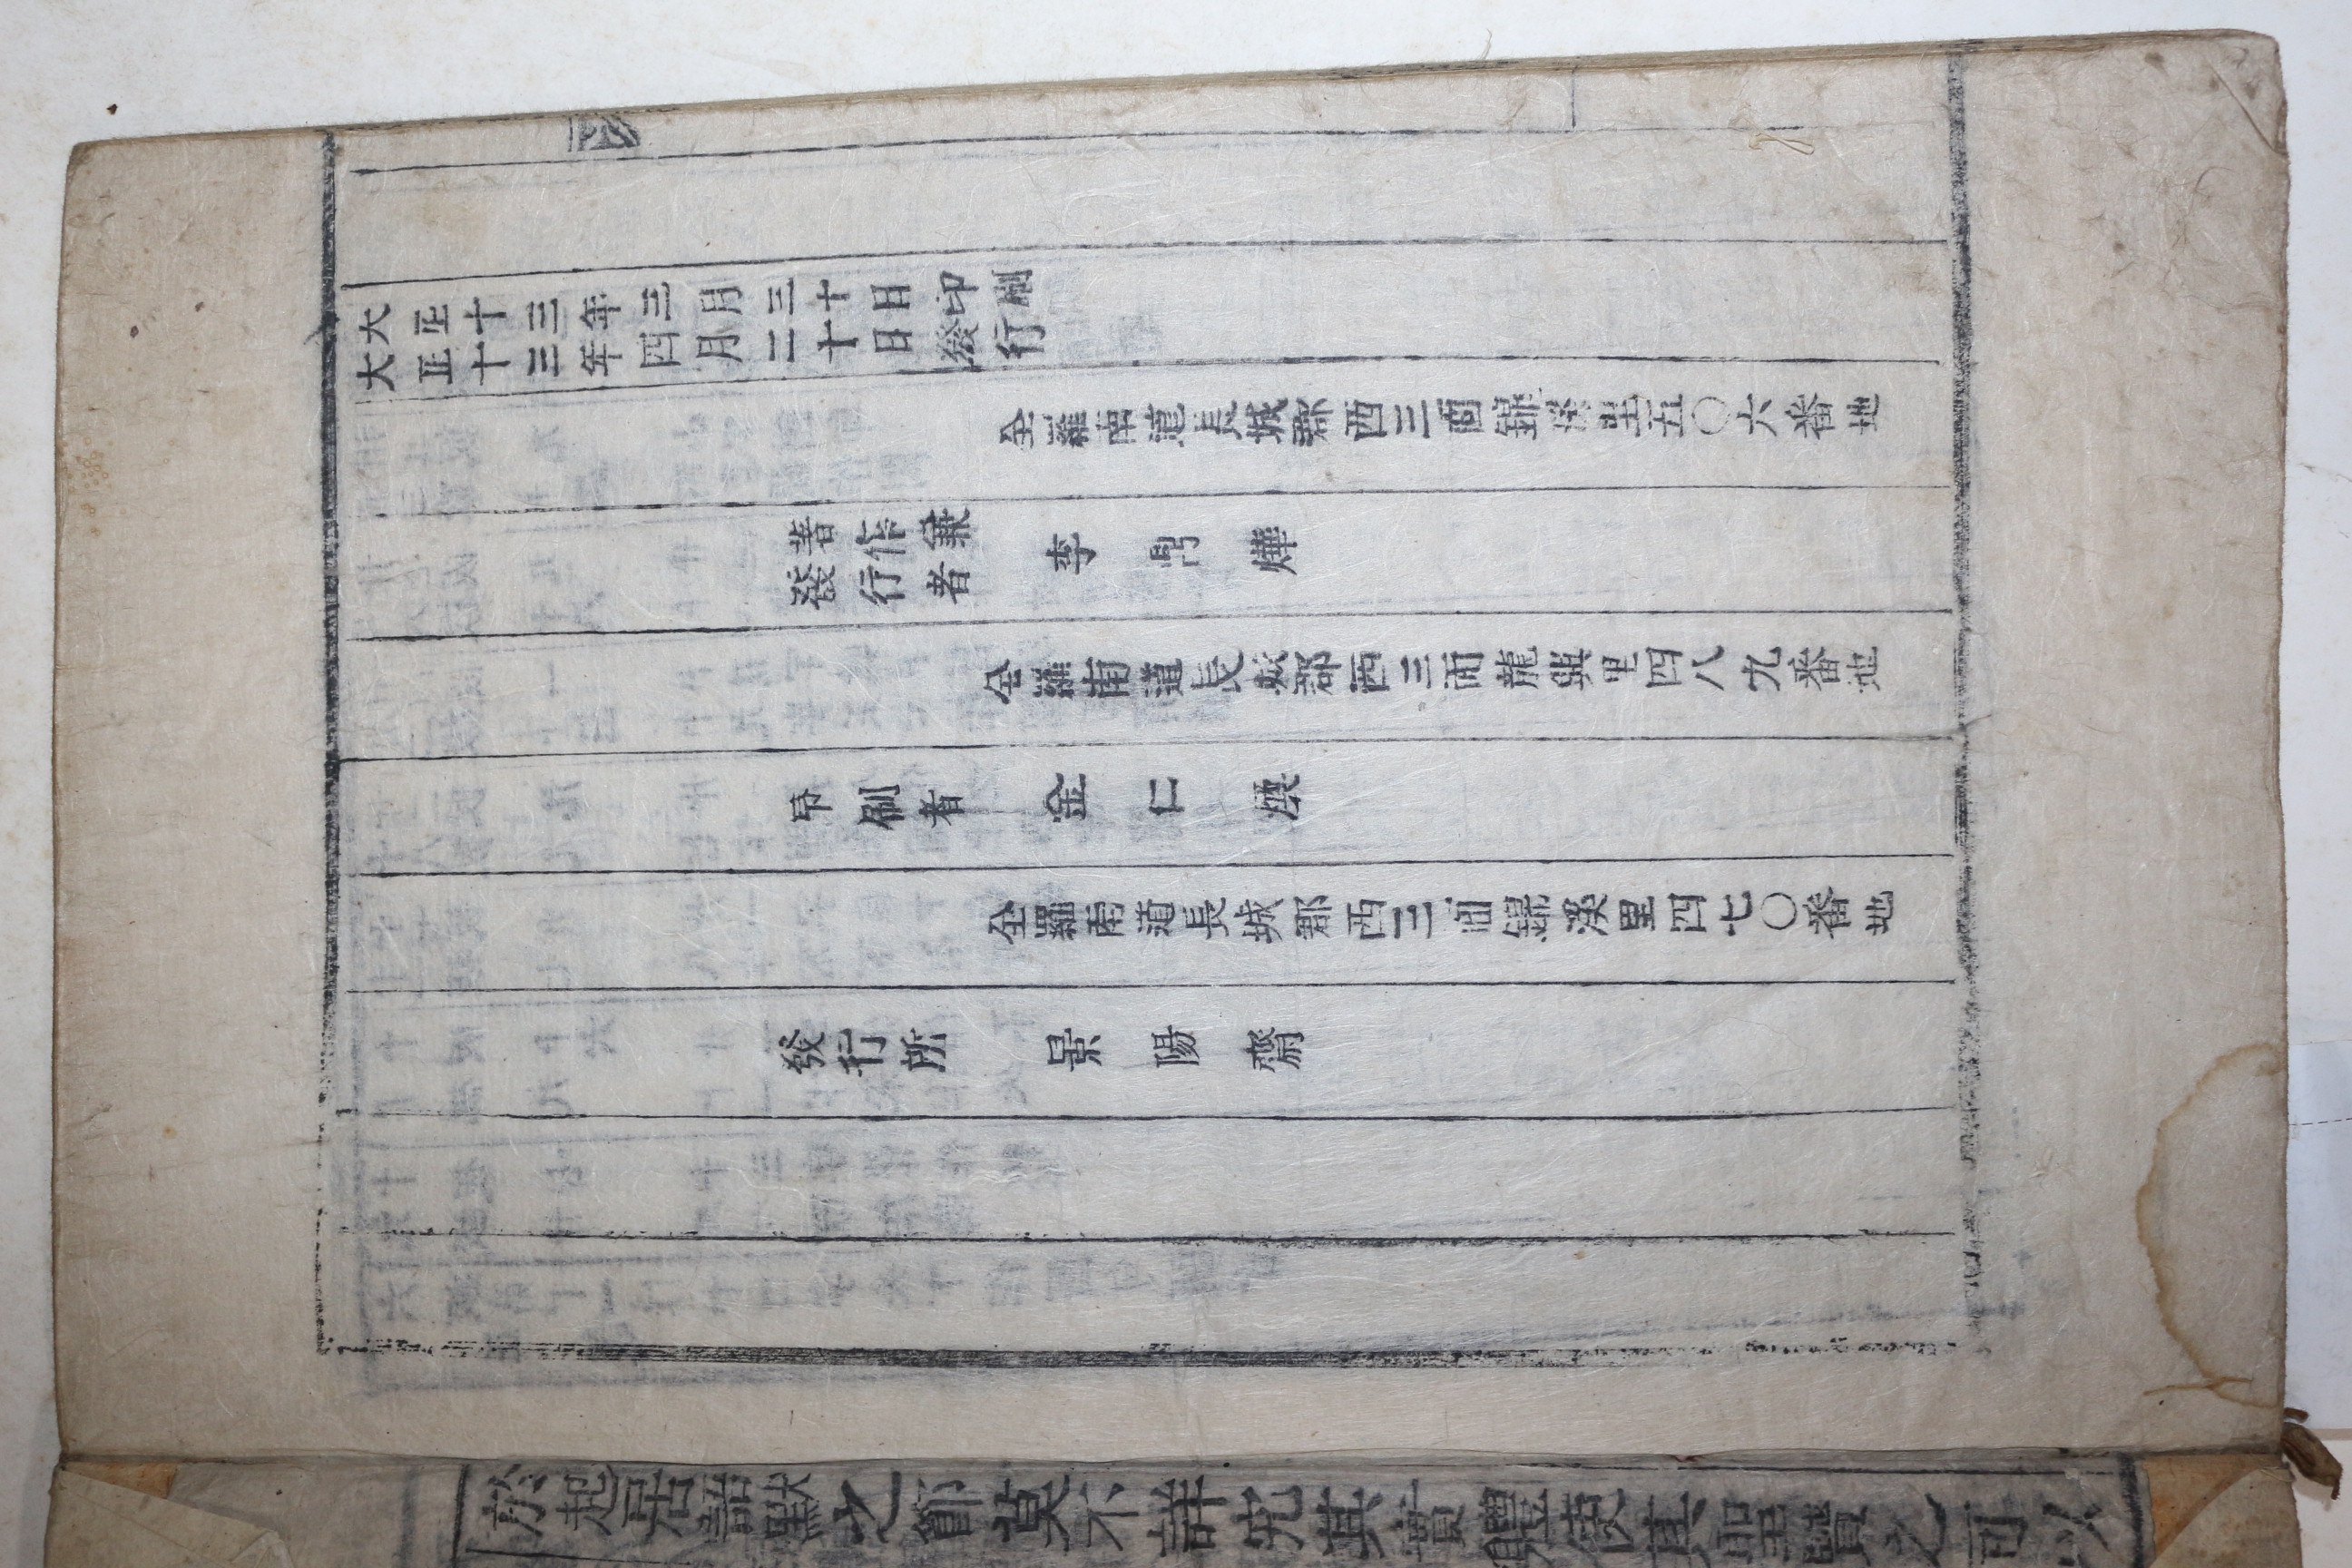 大正十三年三月三十日印刷
大正十三年四月二十日發行
全羅南道長城郡西三面錦溪里五〇六番地
著作兼
發行者 李鼎燁
全羅南道長城郡西三面龍興里四八九番地
印刷者 金仁煥
全羅南道長城郡西三面錦溪里四七〇番地
發行所 景陽齋
於起居語默之節莫不詳究其實體使其聖賢之可以